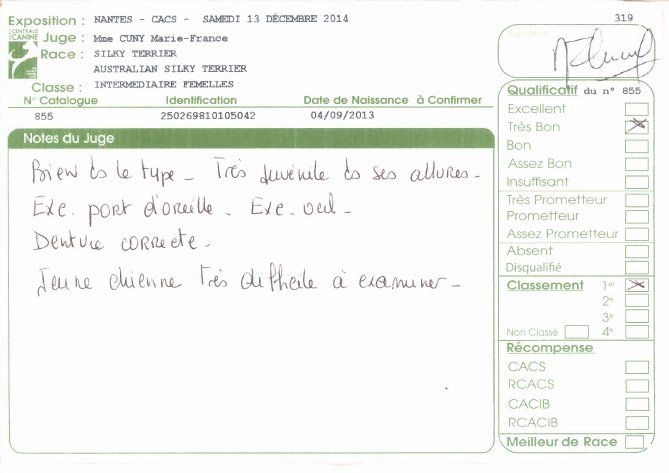 Exposition : NANTES - CACS - SAMEDI 13 DÉCEMBRE 2014
319
CENTRALE
CANINE
Juge : Mme CUNY Marie-France
Race : SILKY TERRIER
AUSTRALIAN SILKY TERRIER
Classe : INTERMEDIAIRE FEMELLES
N° Catalogue Identification Date de Naissance à Confirmer
855 250269810105042 04/09/2013
Notes du Juge
Bien ds le type - Très juvénile ds ses allures -
Exc. port d'oreille - Exc. oeil -
Denture correcte.
Jeune chienne très difficile à examiner -
Qualificatif du n° 855
Excellent
Très Bon
Bon
Assez Bon
Insuffisant
Très Prometteur
Prometteur
Assez Prometteur
Absent
Disqualifié
Classement 1er
2e
3e
Non Classé 4e
Récompense
CACS
RCACS
CACIB
RCACIB
Meilleur de Race